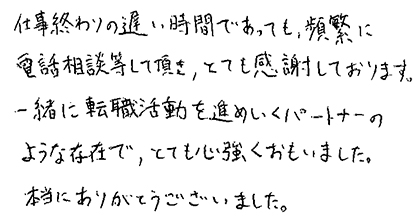 仕事終わりの遅い時間であっても,頻繁に
電話相談等して頂き,とても感謝しております。
一緒に転職活動を進めいくパートナーの
ような存在で,とても心強くおもいました。
本当にありがとうございました。